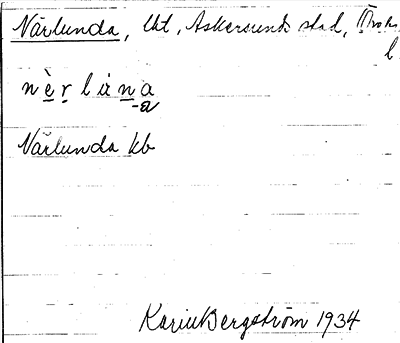 Närlunda, lht, Askersunds stad, Örebro
l
nèrlùna
-a
Närlunda kb
Karin Bergström 1934